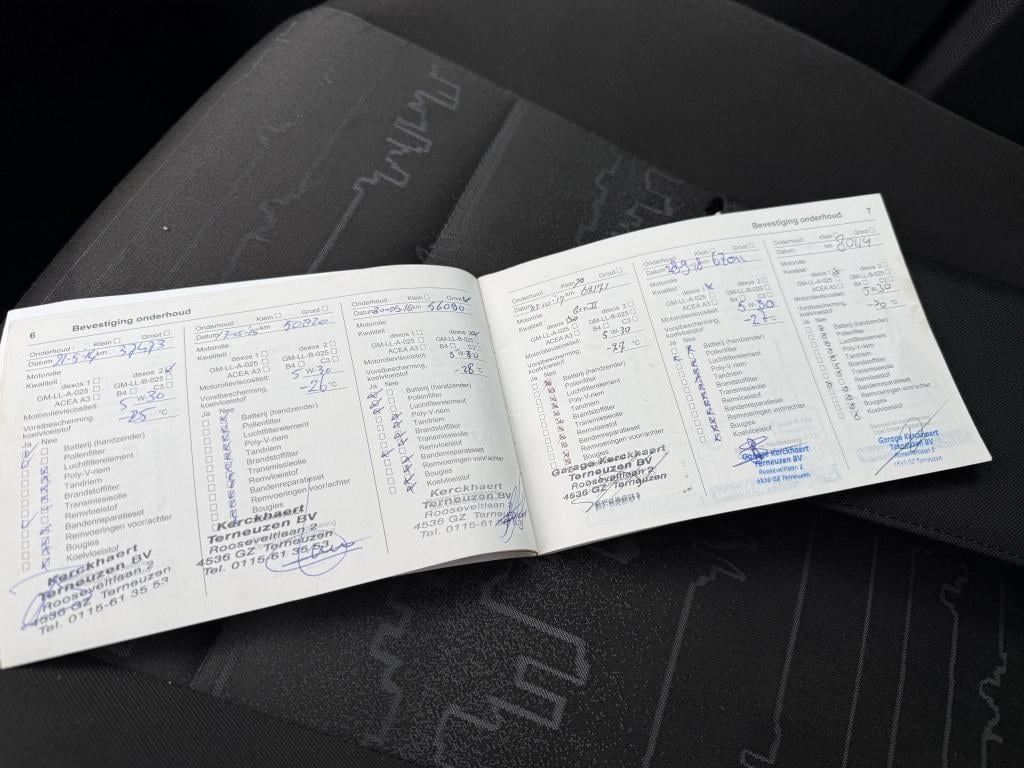 6
Bevestiging onderhoud
Onderhoud : Klein Groot
Datum 21-5-14 km 37473
Motorolie
Kwaliteit : dexos 1 dexos 2
GM-LL-A-025 GM-LL-B-025
ACEA A3 B4 C3
Motorolieviscositeit: 5 W 30
Vorstbescherming, koelvloeistof -25 °C
Ja Nee
Batterij (handzender)
Pollenfilter
Luchtfilterelement
Poly-V-riem
Tandriem
Brandstoffilter
Transmissieolie
Remvloeistof
Bandenreparatieset
Remvoeringen voor/achter
Bougies
Koelvloeistof
Kerckhaert
Terneuzen BV
Rooseveltlaan 2
4536 GZ Terneuzen
Tel. 0115-61 35 53
Onderhoud : Klein Groot
Datum km 50820
Motorolie
Kwaliteit : dexos 1 dexos 2
GM-LL-A-025 GM-LL-B-025
ACEA A3 B4 C3
Motorolieviscositeit: 5 W 30
Vorstbescherming, koelvloeistof -26 °C
Ja Nee
Batterij (handzender)
Pollenfilter
Luchtfilterelement
Poly-V-riem
Tandriem
Brandstoffilter
Transmissieolie
Remvloeistof
Bandenreparatieset
Remvoeringen voor/achter
Bougies
Kerckhaert
Terneuzen BV
Rooseveltlaan 2
4536 GZ Terneuzen
Tel. 0115-61 35 53
Onderhoud : Klein Groot
Datum km 56090
Motorolie
Kwaliteit : dexos 1 dexos 2
GM-LL-A-025 GM-LL-B-025
ACEA A3 B4 C3
Motorolieviscositeit: 5 W 30
Vorstbescherming, koelvloeistof -28 °C
Ja Nee
Batterij (handzender)
Pollenfilter
Luchtfilterelement
Poly-V-riem
Tandriem
Brandstoffilter
Transmissieolie
Remvloeistof
Bandenreparatieset
Remvoeringen voor/achter
Bougies
Koelvloeistof
Kerckhaert
Terneuzen BV
Rooseveltlaan 2
4536 GZ Terneuzen
Tel. 0115-61
Bevestiging onderhoud
7
Onderhoud : Klein Groot
Datum km
Motorolie
Kwaliteit : dexos 2
GM-LL-A-025 GM-LL-B-025
ACEA A3 B4 C3
Motorolieviscositeit: 5 W 30
Vorstbescherming, koelvloeistof -27 °C
Ja Nee
Batterij (handzender)
Pollenfilter
Luchtfilterelement
Poly-V-riem
Tandriem
Brandstoffilter
Transmissieolie
Remvloeistof
Bandenreparatieset
Remvoeringen voor/achter
Bougies
Koelvloeistof
Garage Kerckhaert
Terneuzen BV
Rooseveltlaan 2
4536 GZ Terneuzen
Onderhoud : Klein Groot
Datum 28-9-18 km 67011
Motorolie
Kwaliteit : dexos 1 dexos 2
GM-LL-A-025 GM-LL-B-025
ACEA A3 B4 C3
Motorolieviscositeit: 5 W 30
Vorstbescherming, koelvloeistof -27 °C
Ja Nee
Batterij (handzender)
Pollenfilter
Luchtfilterelement
Poly-V-riem
Tandriem
Brandstoffilter
Transmissieolie
Remvloeistof
Bandenreparatieset
Remvoeringen voor/achter
Bougies
Koelvloeistof
Garage Kerckhaert
Terneuzen BV
Rooseveltlaan 2
4536 GZ Terneuzen
Onderhoud : Klein Groot
Datum : km 80114
Motorolie
Kwaliteit : dexos 1 dexos 2
GM-LL-A-025 GM-LL-B-025
ACEA A3 B4 C3
Motorolieviscositeit: 5 W 30
Vorstbescherming, koelvloeistof -30 °C
Ja Nee
Batterij (handzender)
Pollenfilter
Luchtfilterelement
Poly-V-riem
Tandriem
Brandstoffilter
Transmissieolie
Remvloeistof
Bandenreparatieset
Remvoeringen voor/achter
Bougies
Koelvloeistof
Garage Kerckhaert
Terneuzen BV
Rooseveltlaan 2
4536 GZ Terneuzen